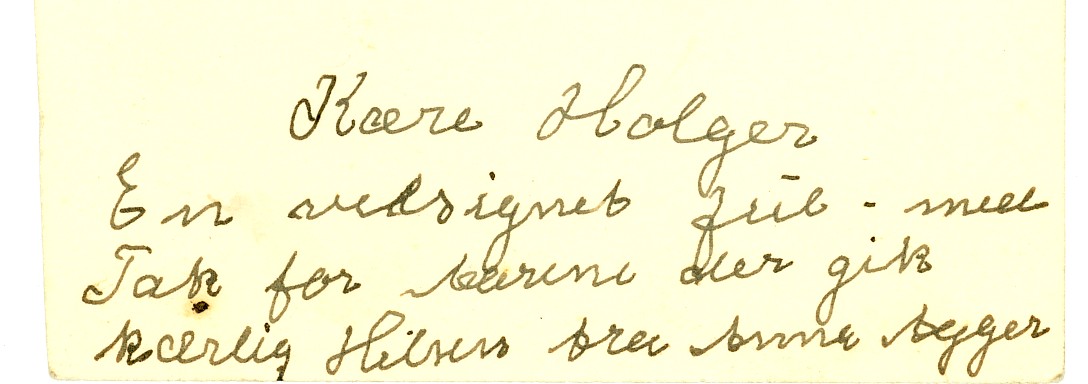 Kære Holger
En velsignet Jul - med
Tak for aarene der gik
kærlig Hilsen fra Anna Aygger